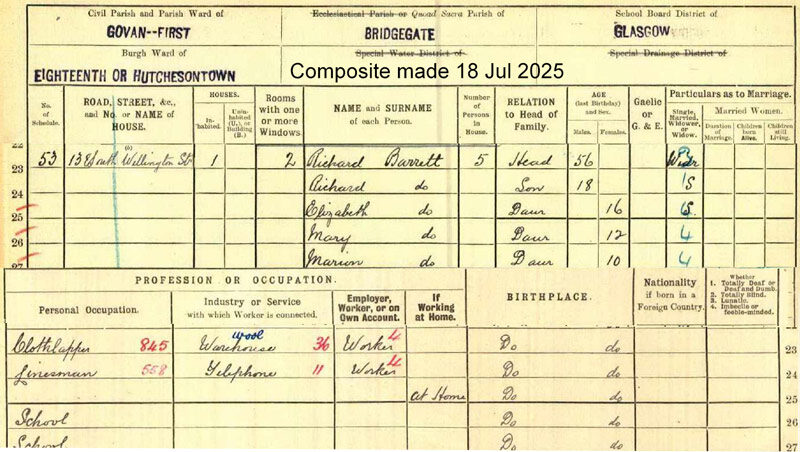 Civil Parish and Parish Ward of
GOVAN--FIRST
Ecclesiastical Parish or Quoad Sacra Parish of
BRIDGEGATE
School Board District of
GLASGOW
Burgh Ward of
EIGHTEENTH OR HUTCHESONTOWN
Special Water District of
Special Drainage District of
Composite made 18 Jul 2025
No. of Schedule.
ROAD, STREET, &c., and No. or NAME of HOUSE.
HOUSES.
Inhabited.
Uninhabited (U.), or Building (B.)
Rooms with one or more Windows
NAME and SURNAME of each Person.
Number of Persons in House.
RELATION to Head of Family.
AGE (last Birthday) and Sex.
Males.
Females.
Gaelic or G. & E.
Particulars as to Marriage.
Single, Married, Widower, or Widow.
Married Women.
Duration of Marriage.
Children born Alive.
Children still Living.
22
23 53 13 South Wellington St 1 2 Richard Barrett 5 Head 56 Widr
24 Richard do Son 18 S
25 Elizabeth do Daur 16 S
26 Mary do Daur 12 4
27 Marion do Daur 10 4
PROFESSION OR OCCUPATION.
Personal Occupation.
Industry or Service with which Worker is connected.
Employer, Worker, or on Own Account.
If Working at Home.
BIRTHPLACE.
Nationality if born in a Foreign Country.
Whether
1. Totally Deaf or Deaf and Dumb.
2. Totally Blind.
3. Lunatic.
4. Imbecile or feeble-minded.
Clothlapper 845 Warehouse wool 36 Worker 4 Do do 23
Linesman 558 Telephone 11 Worker 4 Do do 24
at Home Do do 25
School Do do 26
School Do do 27